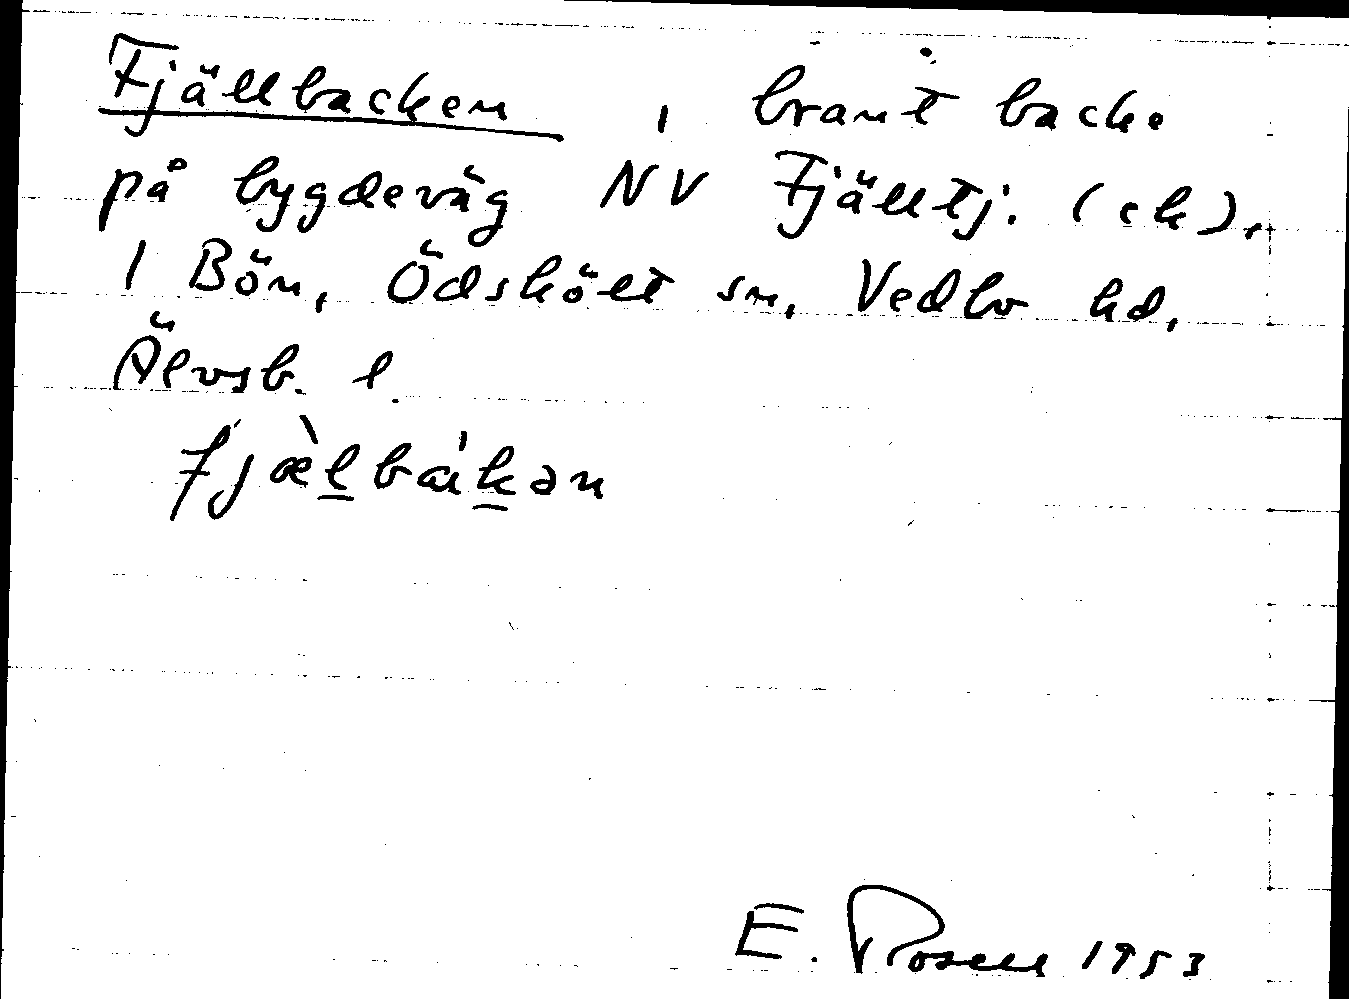 Fjällbacken, brant backe
på bygdeväg NV Fjälltj. (ek),
i Bön, Ödskölt sn, Vedbo hd,
Älvsb. l.
fjæ̀l̲bák̲ən
E. Rosell 1953